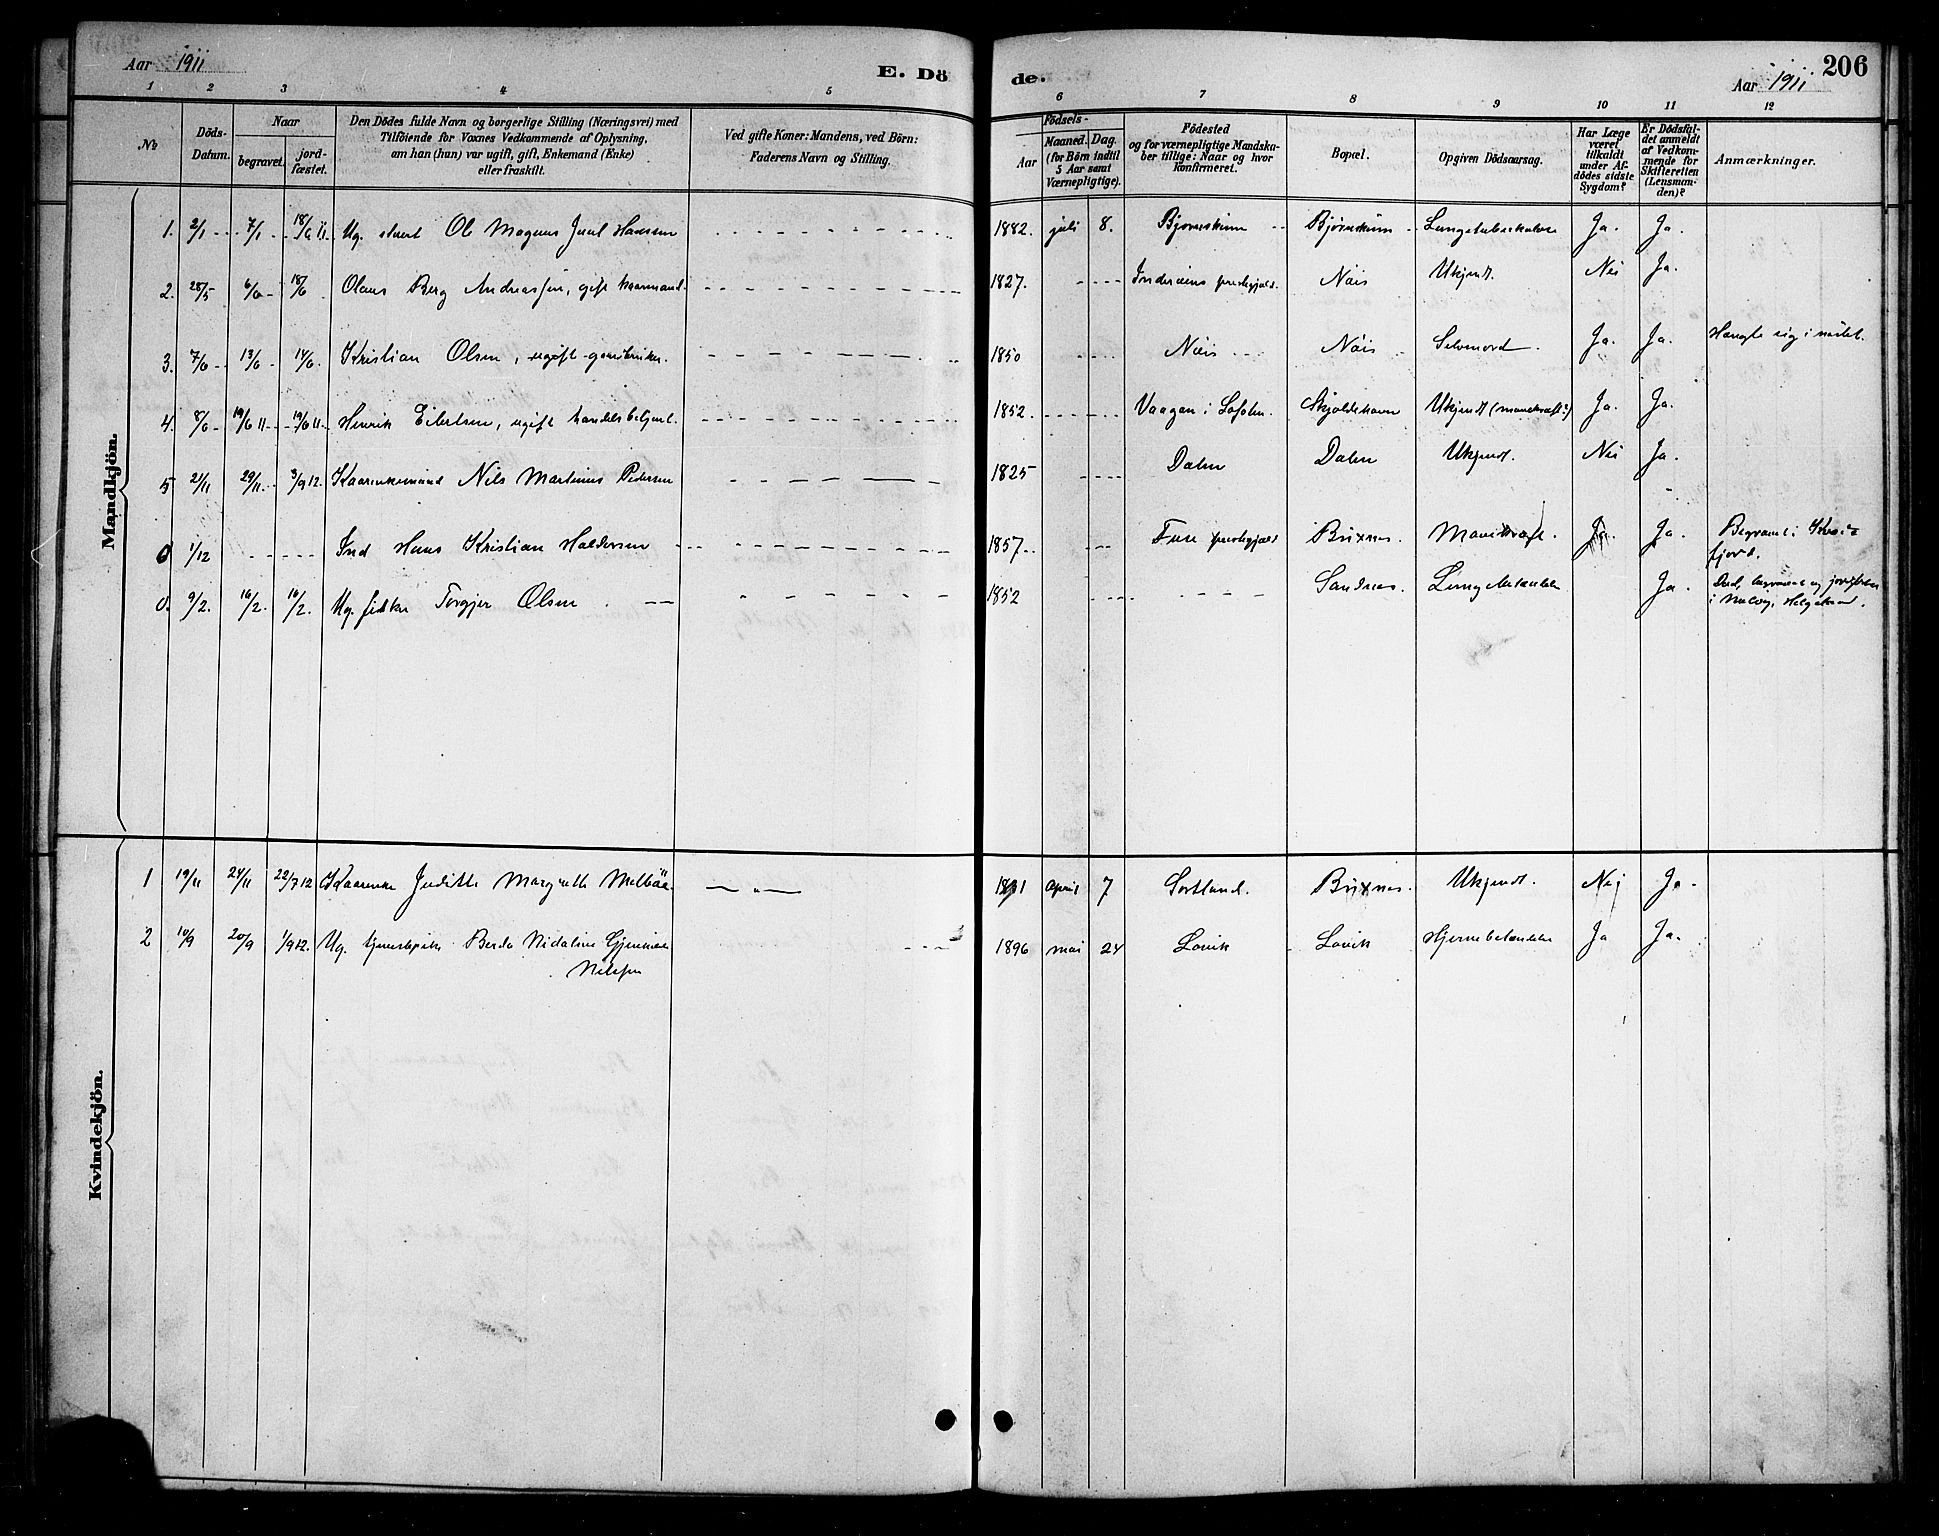 Aar 1911
E. Dö
de.
Aar 1911
206
1 2 3 4 5 6 7 8 9 10 11 12
No
Döds-Datum.
Naar
begravet.
jord-fæstet.
Den Dödes fulde Navn og borgerlige Stilling (Næringsvei) med
Tilföiende for Voxnes Vedkommende af Oplysning,
om han (hun) var ugift, gift, Enkemand (Enke)
eller fraskilt.
Ved gifte Koner: Mandens, ved Börn:
Faderens Navn og Stilling.
Födsels-
Aar
Maaned. Dag.
(for Börn indtil
5 Aar samt
Værnepligtige).
Födested
og for værnepligtige Mandska-
ber tillige: Naar og hvor
konfirmeret.
Bopæl.
Opgiven Dödsaarsag.
Har Læge
været
tilkaldt
under Af-
dödes sidste
Sygdom?
Er Dödsfal-
det anmeldt
af Vedkom-
mende for
Skifteretten
(Lensman-
den)?
Anmærkninger.
Mandkjön.
1. 2/1 7/1 18/6 11. Ug. Ole Magnus Juul Hansen 1882. juli 8. Bjørnskinn Bjørnskinn Ja. Ja.
2. 28/5 6/6 18/6 Olaus Berg Andreassen, gift kaarmand. 1827. Inderøens prestegjæld. Nøis Ukjendt. Nei Ja.
3. 7/6 13/6 14/6. Kristian Olsen, ugift gaardbruker. 1850 Nøis Nøis Selvmord. Ja. Ja. Hængte sig i nøstet.
4. 8/6 19/6 11 19/6 11. Henrik Eilertsen, ugift handelsbetjent. 1852. Vaagan i Lofoten. Skjoldehavn Ukjendt (mavekræft?) Ja. Ja.
5 21/11 29/11. 3/9 12. Kaarenkemand Nils Martinus Pedersen 1825 Dalen Dalen Ukjendt. Nei Ja.
0 1/12 Ind Hans Kristian Haldorsen 1857. Fuse prestegjæld Buxnes. Mavekræft. Ja. Ja. Begravet i Kvæ-
fjord.
0. 9/2. 16/2. 16/2. Ug. fisker Torgjer Olsen 1852 Sandnes. Lungebetændelse Ja. Ind, begravet og jordfæstet
i
Kvindekjön.
1 19/11 24/11 22/7 12 Kaarenke Juditte Margrethe Melbøe 1831 april 7 Sortland. Buxnes. Ukjendt. Nej Ja.
2 10/9 20/9 1/9 12. Ug. tjenestepike Berda Nidaline Gjermine
Nilssen 1896 mai 24 Lovik Lovik Hjernebetændelse Ja Ja.